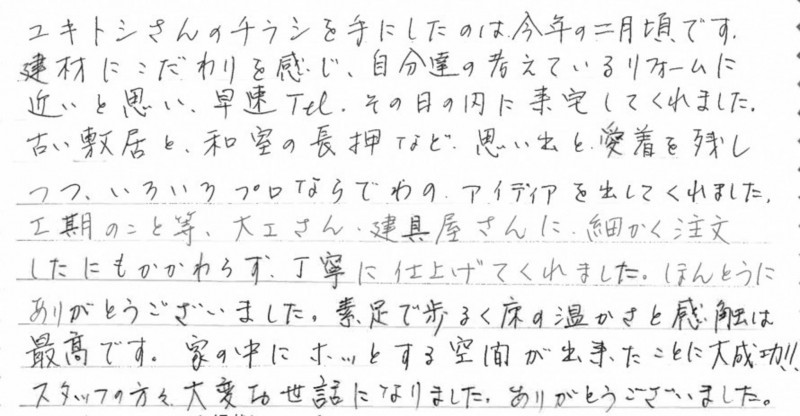 ユキトシさんのチラシを手にしたのは今年の二月頃です。
建材にこだわりを感じ、自分達の考えているリフォームに
近いと思い、早速Tel。その日の内に来宅してくれました。
古い敷居と、和室の長押など、思い出と愛着を残し
つつ、いろいろプロならでわの、アイディアを出してくれました。
工期のこと等、大工さん・建具屋さんに、細かく注文
したにもかかわらず、丁寧に仕上げてくれました。ほんとうに
ありがとうございました。素足で歩るく床の温かさと感触は
最高です。家の中にホッとする空間が出来たことに大成功!!
スタッフの方々、大変お世話になりました。ありがとうございました。